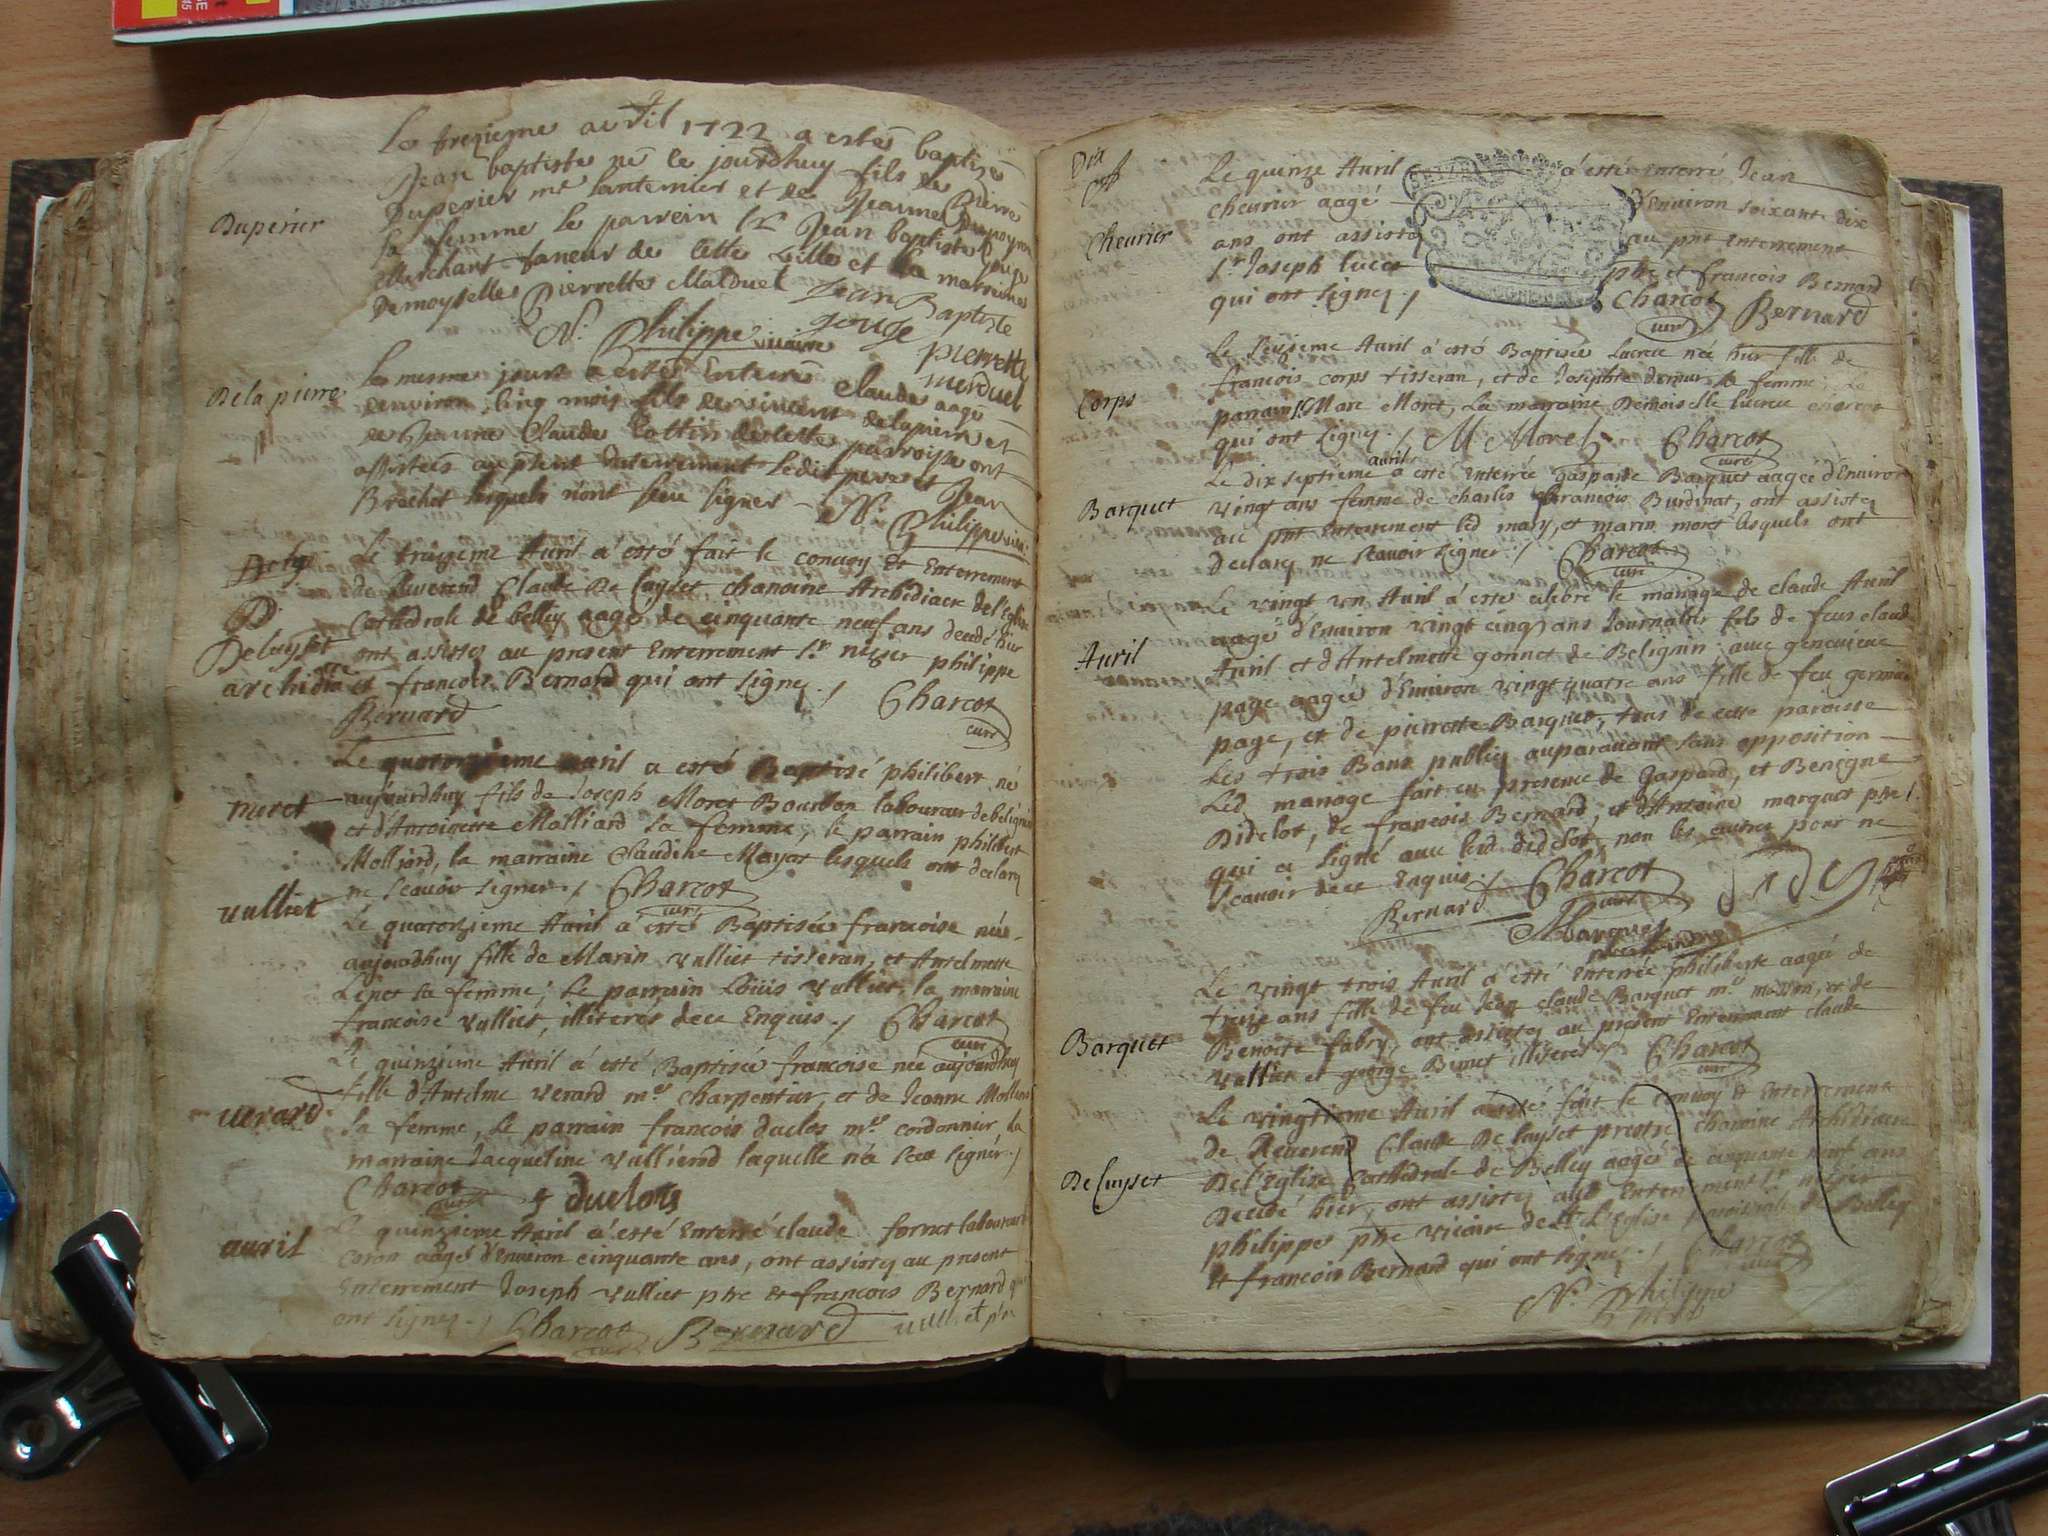 Le trezieme avril 1722 a estés baptizé
Jean baptiste né le jourdhuy fils de Pierre
Duperier
Duperier mre lanternier et de Jeanne
sa femme le parrein Sr Jean baptiste
Marchant taneur de cette ville et la mareine
Demoyselles Pierrette Malduel Jean Baptiste
N. Philippe vicaire gouge
pierrette
merduel
De la pierre
Le mesme jour a estés Enterré Claude aagé
denviron cinq mois fils de vincent delapierre et
de Jeanne Claude Cottin de cette parroisse ont
assistées au present Enterrement ledit pere et Jean
Brochet lesquels n'ont sceu signer N. Philippe
Le traizieme Avril a esté fait le convoy et Enterrement
de Reverend Claude De Luyset chanoine Archidiacre de l'Eglise
Cathedrale de belley aagé de cinquante neuf ans decedé hier
Deluyset
ont assistez au present Enterrement Sr niger philippe
archidiacre
et francois Bernard qui ont signez./. Charcot
Bernard curé
Le quatorzieme avril a esté Baptisé philibert né
moret
aujourdhuy fils de Joseph Moret Bourbon laboureur de belignin
et d'Antoinette Molliard sa femme, le parrain philibert
Molliard, la marraine Claudine Mayot lesquels ont declaré
ne scavoir signer./. Charcot
curé
vulliet
Le quatorzieme Avril a esté Baptisée francoise née
aujourdhuy fille de Marin vulliet tisseran, et Antelmette
Lenet sa femme; le parrain Louis vulliet, la marraine
francoise vulliet, illiterés de ce Enquis./. Charcot
curé
Le quinzieme Avril a esté Baptisée francoise née aujourdhuy
verard
fille d'Antelme verard me charpentier, et de Jeanne
sa femme, Le parrain francois duclos me cordonnier, la
marraine Jacqueline vullierod laquelle n'a sceu signer./
Charcot f duclots
curé
avril
Le quinzieme Avril a esté Enterré claude fornet laboureur
Coron aagé d'Environ cinquante ans, ont assistez au present
Enterrement Joseph vulliet ptre et francois Bernard qui
ont signez./ Charcot Bernard vulliet ptre
curé
Dix
Le quinze Avril a esté enterré Jean
chevrier aagé d'Environ soixante dix
Chevrier
ans ont assisté au pnt Enterrement
Sr Joseph ptre et francois Bernard
qui ont signez./ Charcot Bernard
curé
Le Seizieme Avril a esté Baptisée Lucrece née hier fille de
francois corps tisseran, et de Josephte sa femme; Le
Corps
parrain Sr Marc Moret, la marraine Demoiselle Lucrece
qui ont signez./ M Morel Charcot
curé
Le dix septiéme avril a esté Enterrée gasparde Barquet aagée d'Environ
Barquet
vingt ans femme de charles francois Burdinat, ont assistez
au pnt Enterrement led mary, et marin moret lesquels ont
declarez ne scavoir signer./ Charcot
curé
Le vingt un Avril a esté celebré le mariage de claude Avril
aagé d'Environ vingt cinq ans Journalier fils de feus claude
Avril
Avril et d'Antelmette gonnet de Belignin avec genevieve
page aagée d'Environ vingt quatre ans fille de feu germain
page, et de pierrette Barquet, tous de cette paroisse
Les trois Bans publiez auparavant sans opposition
Led mariage fait en presence de Gaspard, et Benigne
Didelot, de francois Bernard, et d'Antoine marquet ptre
qui a signé avec led didelot, non les autres pour ne
scavoir de ce Enquis./ Charcot
Bernard curé
Marquet
Le vingt trois Avril a esté Enterrée philiberte aagée de
treize ans fille de feu Jean claude Barquet me masson, et de
Barquet
Benoite fabry, ont assistez au present Enterrement claude
vulliet et george Bimet illiterés./ Charcot
curé
Le vingtieme Avril a esté fait le convoy et Enterrement
de Reverend Claude De Luyset prestre chanoine Archidiacre
De Luyset
De l'Eglise Cathedrale de Belley aagé de cinquante neuf ans
Decedé hier, ont assistez aud Enterrement Sr niger
philippe ptre vicaire de l'Eglise paroissiale de Belley
et francois Bernard qui ont signez./ Charcot
curé
N. Philippe